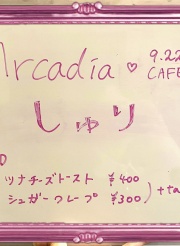 Arcadia ♡ 9.22
CAFE
しゅり
ツナチーズトースト ¥400
シュガークレープ ¥300 ) +ta